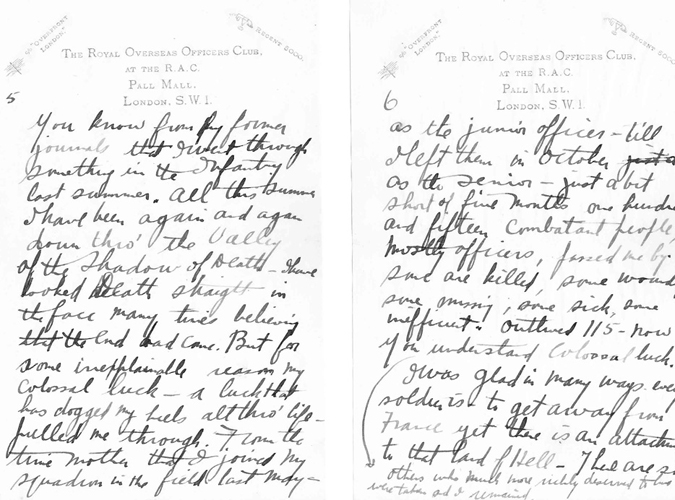 "OVERFRONT
LONDON."
REGENT 5000.
THE ROYAL OVERSEAS OFFICERS CLUB,
AT THE R.A.C.
PALL MALL,
LONDON, S.W.1.
5
You know from my former
journals that I went through
something in the Infantry
last summer. All this summer
I have been again and again
down thro' the Valley
of the Shadow of Death – I have
looked Death straight in
the face many times believing
that the End had come. But for
some inexplainable reason my
colossal luck – a luck that
has dogged my heels all thro' life –
pulled me through. From the
time mother that I joined my
squadron in the field last May –
"OVERFRONT
LONDON."
REGENT 5000.
THE ROYAL OVERSEAS OFFICERS CLUB,
AT THE R.A.C.
PALL MALL,
LONDON, S.W.1.
6
as the junior officer – till
I left them in October just a
as the senior – just a bit
short of five months one hundre
and fifteen combatant people,
mostly officers, passed me by
some are killed, some wound
some missing, some sick, some
inefficient. Outlived 115 – now
you understand colossal luck.
I was glad in many ways
soldiers is to get away from
France yet there is an attachm
to that land of Hell –
others who much more richly deserved to
were taken and I remained.